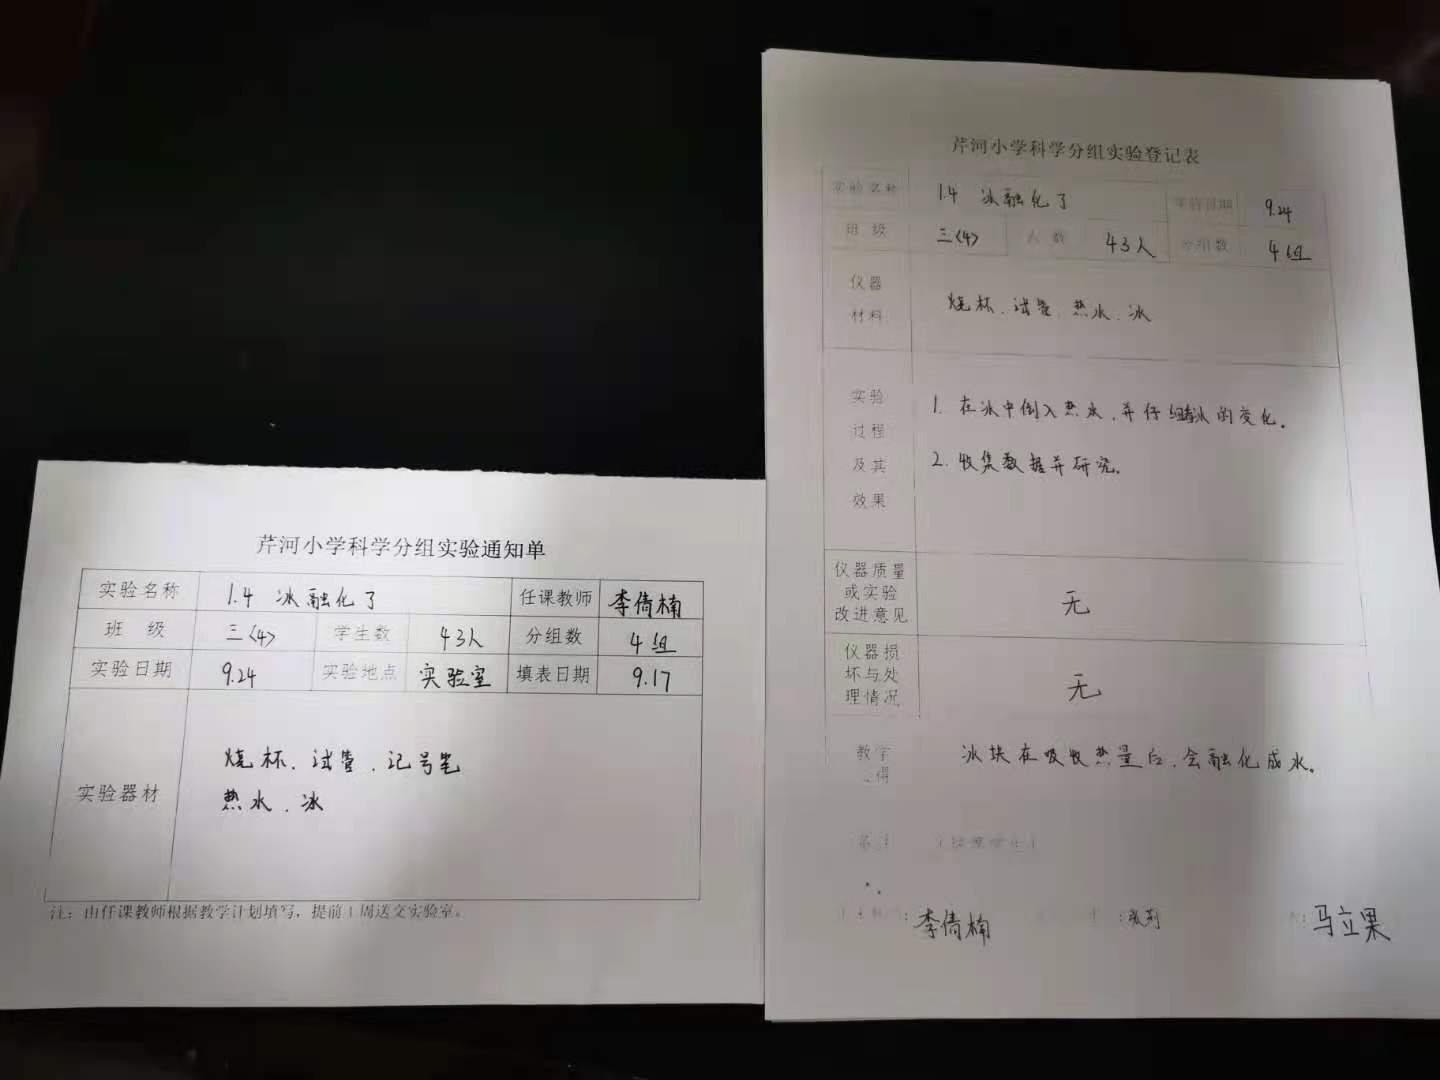 芹河小学科学分组实验通知单
实验名称 1.4 冰融化了 任课教师 李倩楠
班 级 三<4> 学生数 43人 分组数 4组
实验日期 9.24 实验地点 实验室 填表日期 9.17
实验器材
烧杯、试管、记号笔
热水、冰
注：由任课教师根据教学计划填写，提前1周送交实验室。
芹河小学科学分组实验登记表
实验名称 1.4 冰融化了 实验日期 9.24
班 级 三<4> 人 数 43人 分组数 4组
仪器
材料
烧杯、试管、热水、冰
实验
过程
及其
效果
1. 在冰中倒入热水，并仔细 冰的变化。
2. 收集数据并研究。
仪器质量
或实验
改进意见
无
仪器损
坏与处
理情况
无
教学
心得
冰块在吸收热量后，会融化成水。
李倩楠
马立果